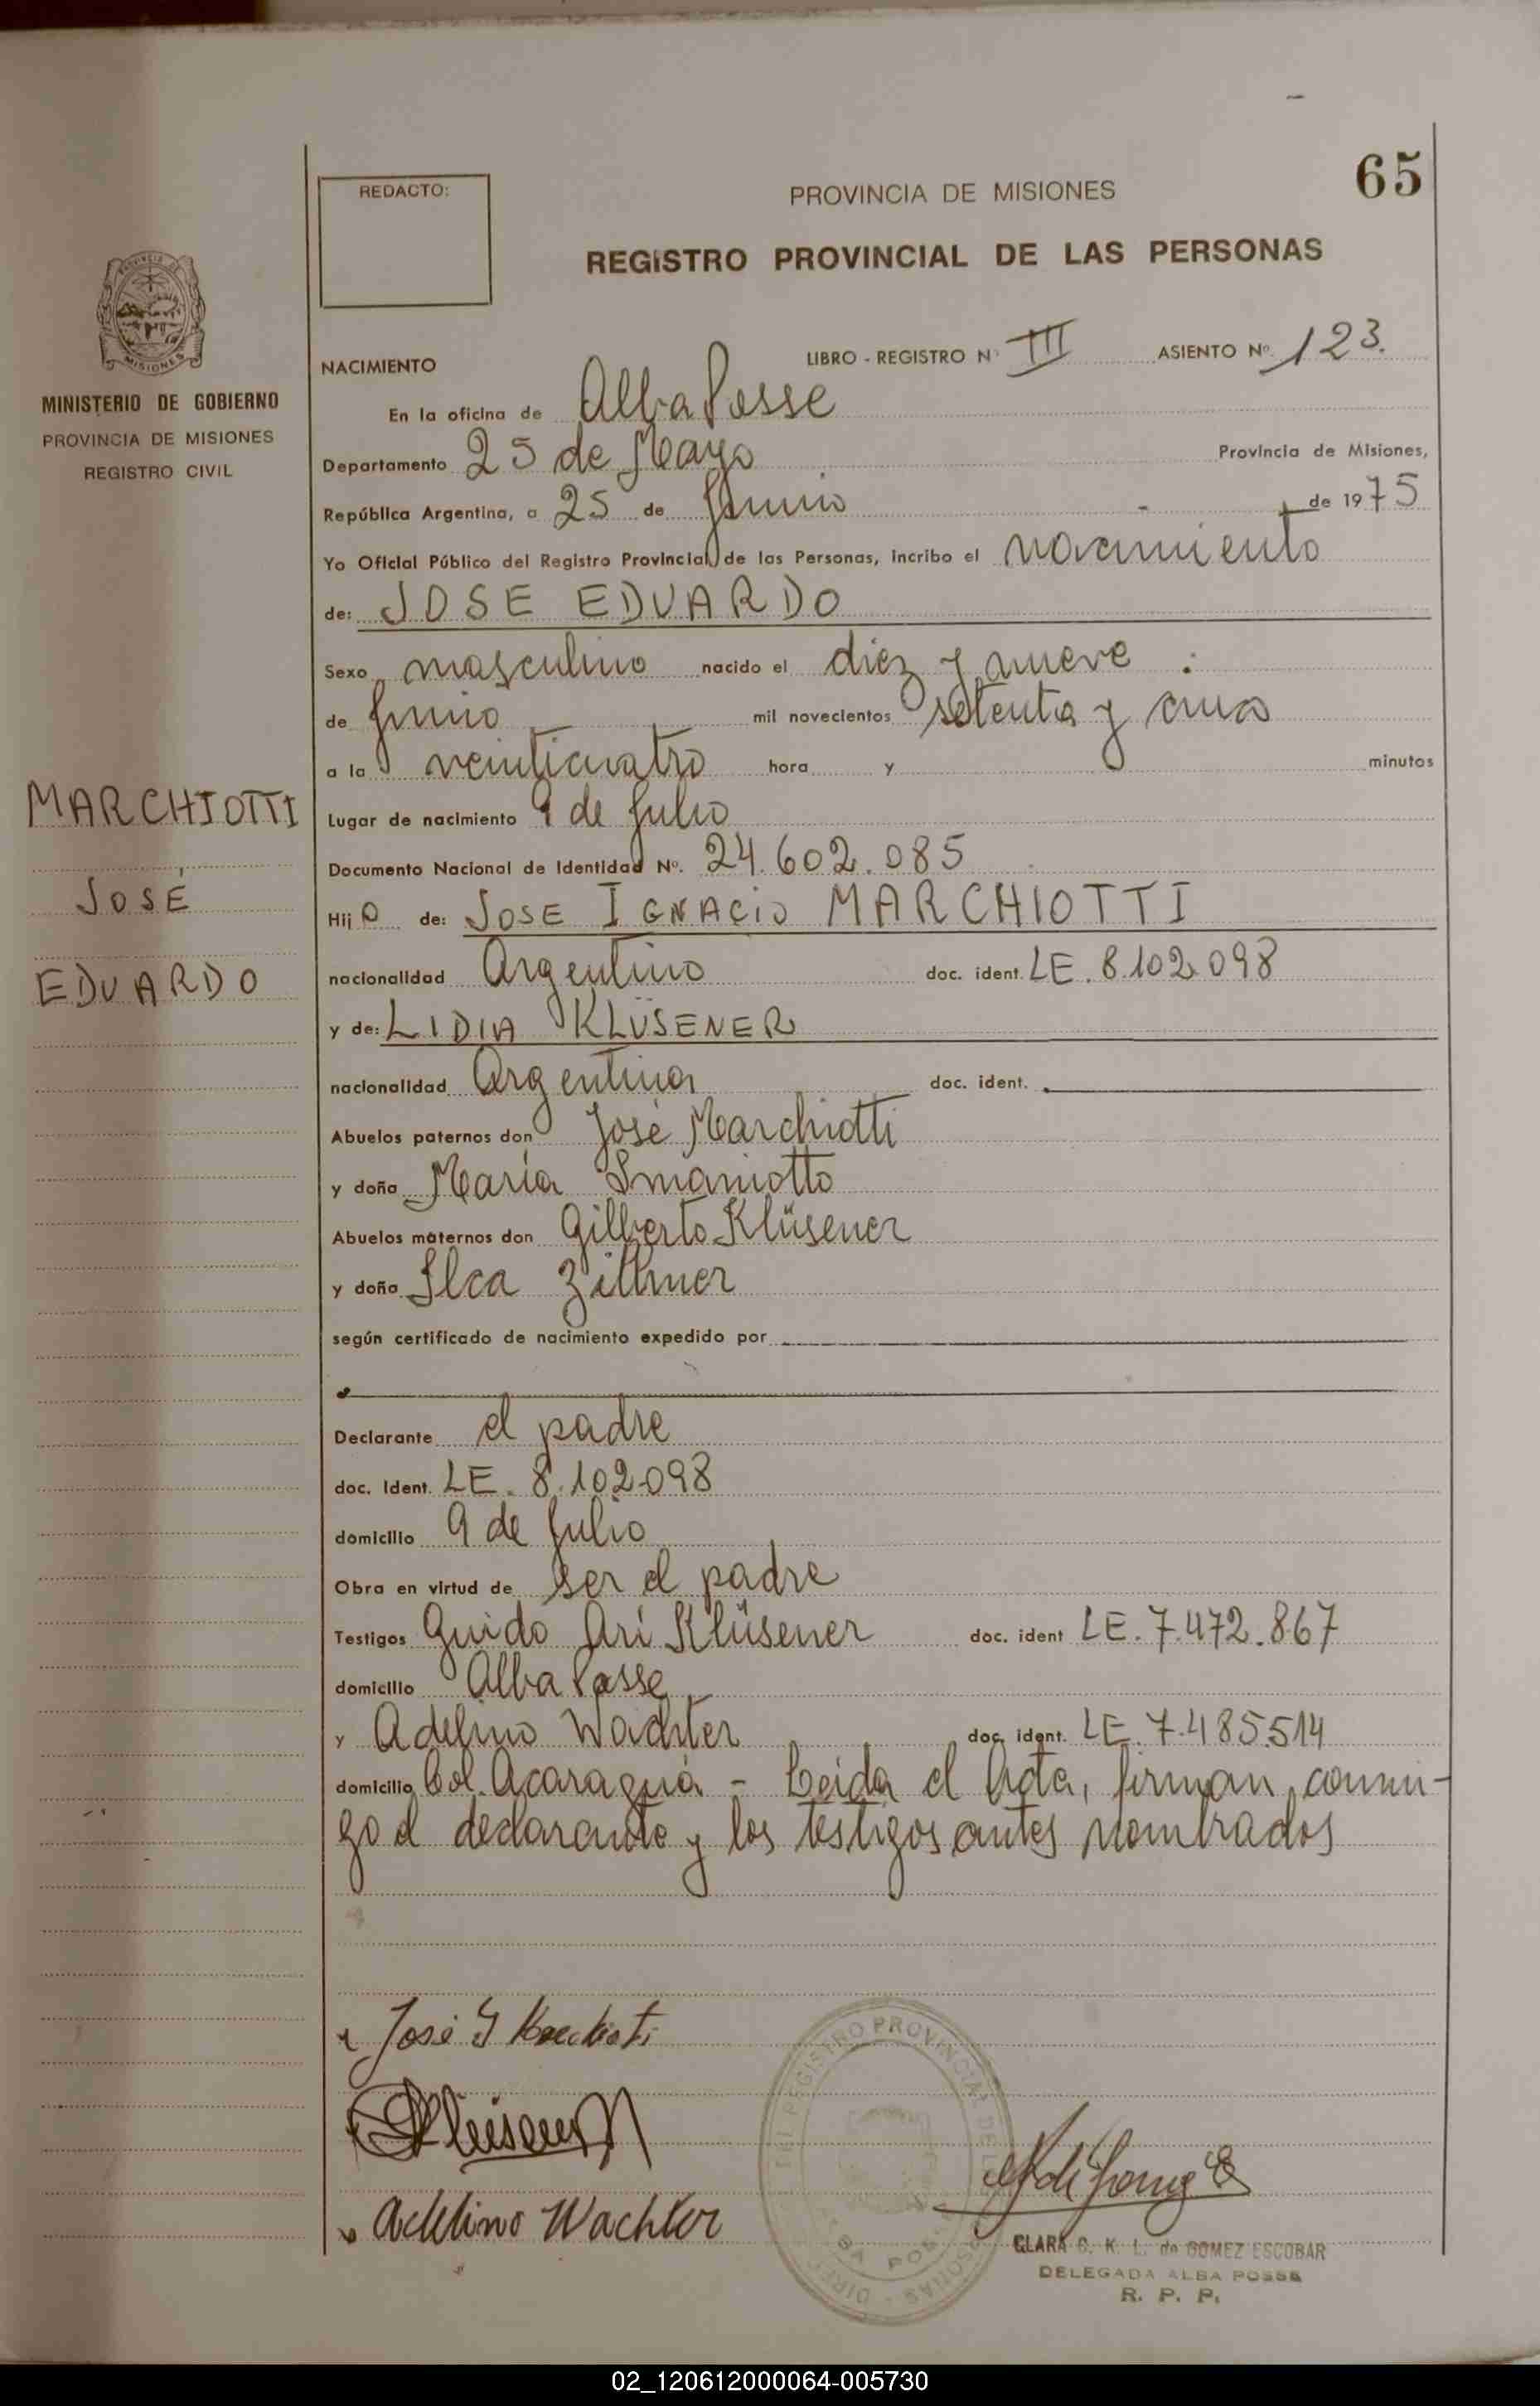 65
REDACTO:
PROVINCIA DE MISIONES
REGISTRO PROVINCIAL DE LAS PERSONAS
MINISTERIO DE GOBIERNO
PROVINCIA DE MISIONES
REGISTRO CIVIL
MARCHIOTTI
JOSÉ
EDUARDO
NACIMIENTO LIBRO - REGISTRO Nº III ASIENTO Nº 123.
En la oficina de Alba Posse
Departamento 25 de Mayo Provincia de Misiones,
República Argentina, a 25 de Junio de 1975
Yo Oficial Público del Registro Provincial de las Personas, incribo el nacimiento
de: JOSE EDUARDO
Sexo masculino nacido el diez y nueve
de Junio mil novecientos setenta y cinco
a la veinticuatro hora y minutos
Lugar de nacimiento 9 de Julio
Documento Nacional de Identidad Nº. 24.602.085
Hijo de: JOSE IGNACIO MARCHIOTTI
nacionalidad Argentino doc. ident. LE. 8.102.098
y de: LIDIA KLÜSENER
nacionalidad Argentina doc. ident.
Abuelos paternos don José Marchiotti
y doña María Smaniotto
Abuelos maternos don Gilberto Klüsener
y doña Ilca Zillmer
según certificado de nacimiento expedido por
Declarante el padre
doc. Ident. LE. 8.102.098
domicilio 9 de Julio
Obra en virtud de ser el padre
Testigos Guido Ari Klüsener doc. ident LE. 7.472.867
domicilio Alba Posse
y Adelino Wachter doc. ident. LE. 7.485.514
domicilio Col. Acaraguá - Leida el Acta, firman conmi-
go el declarante y los testigos antes nombrados
José I Marchioti
Klüsener
Adelino Wachter
CLARA C. K. L. de GOMEZ ESCOBAR
DELEGADA ALBA POSSE
R. P. P.
02_120612000064-005730